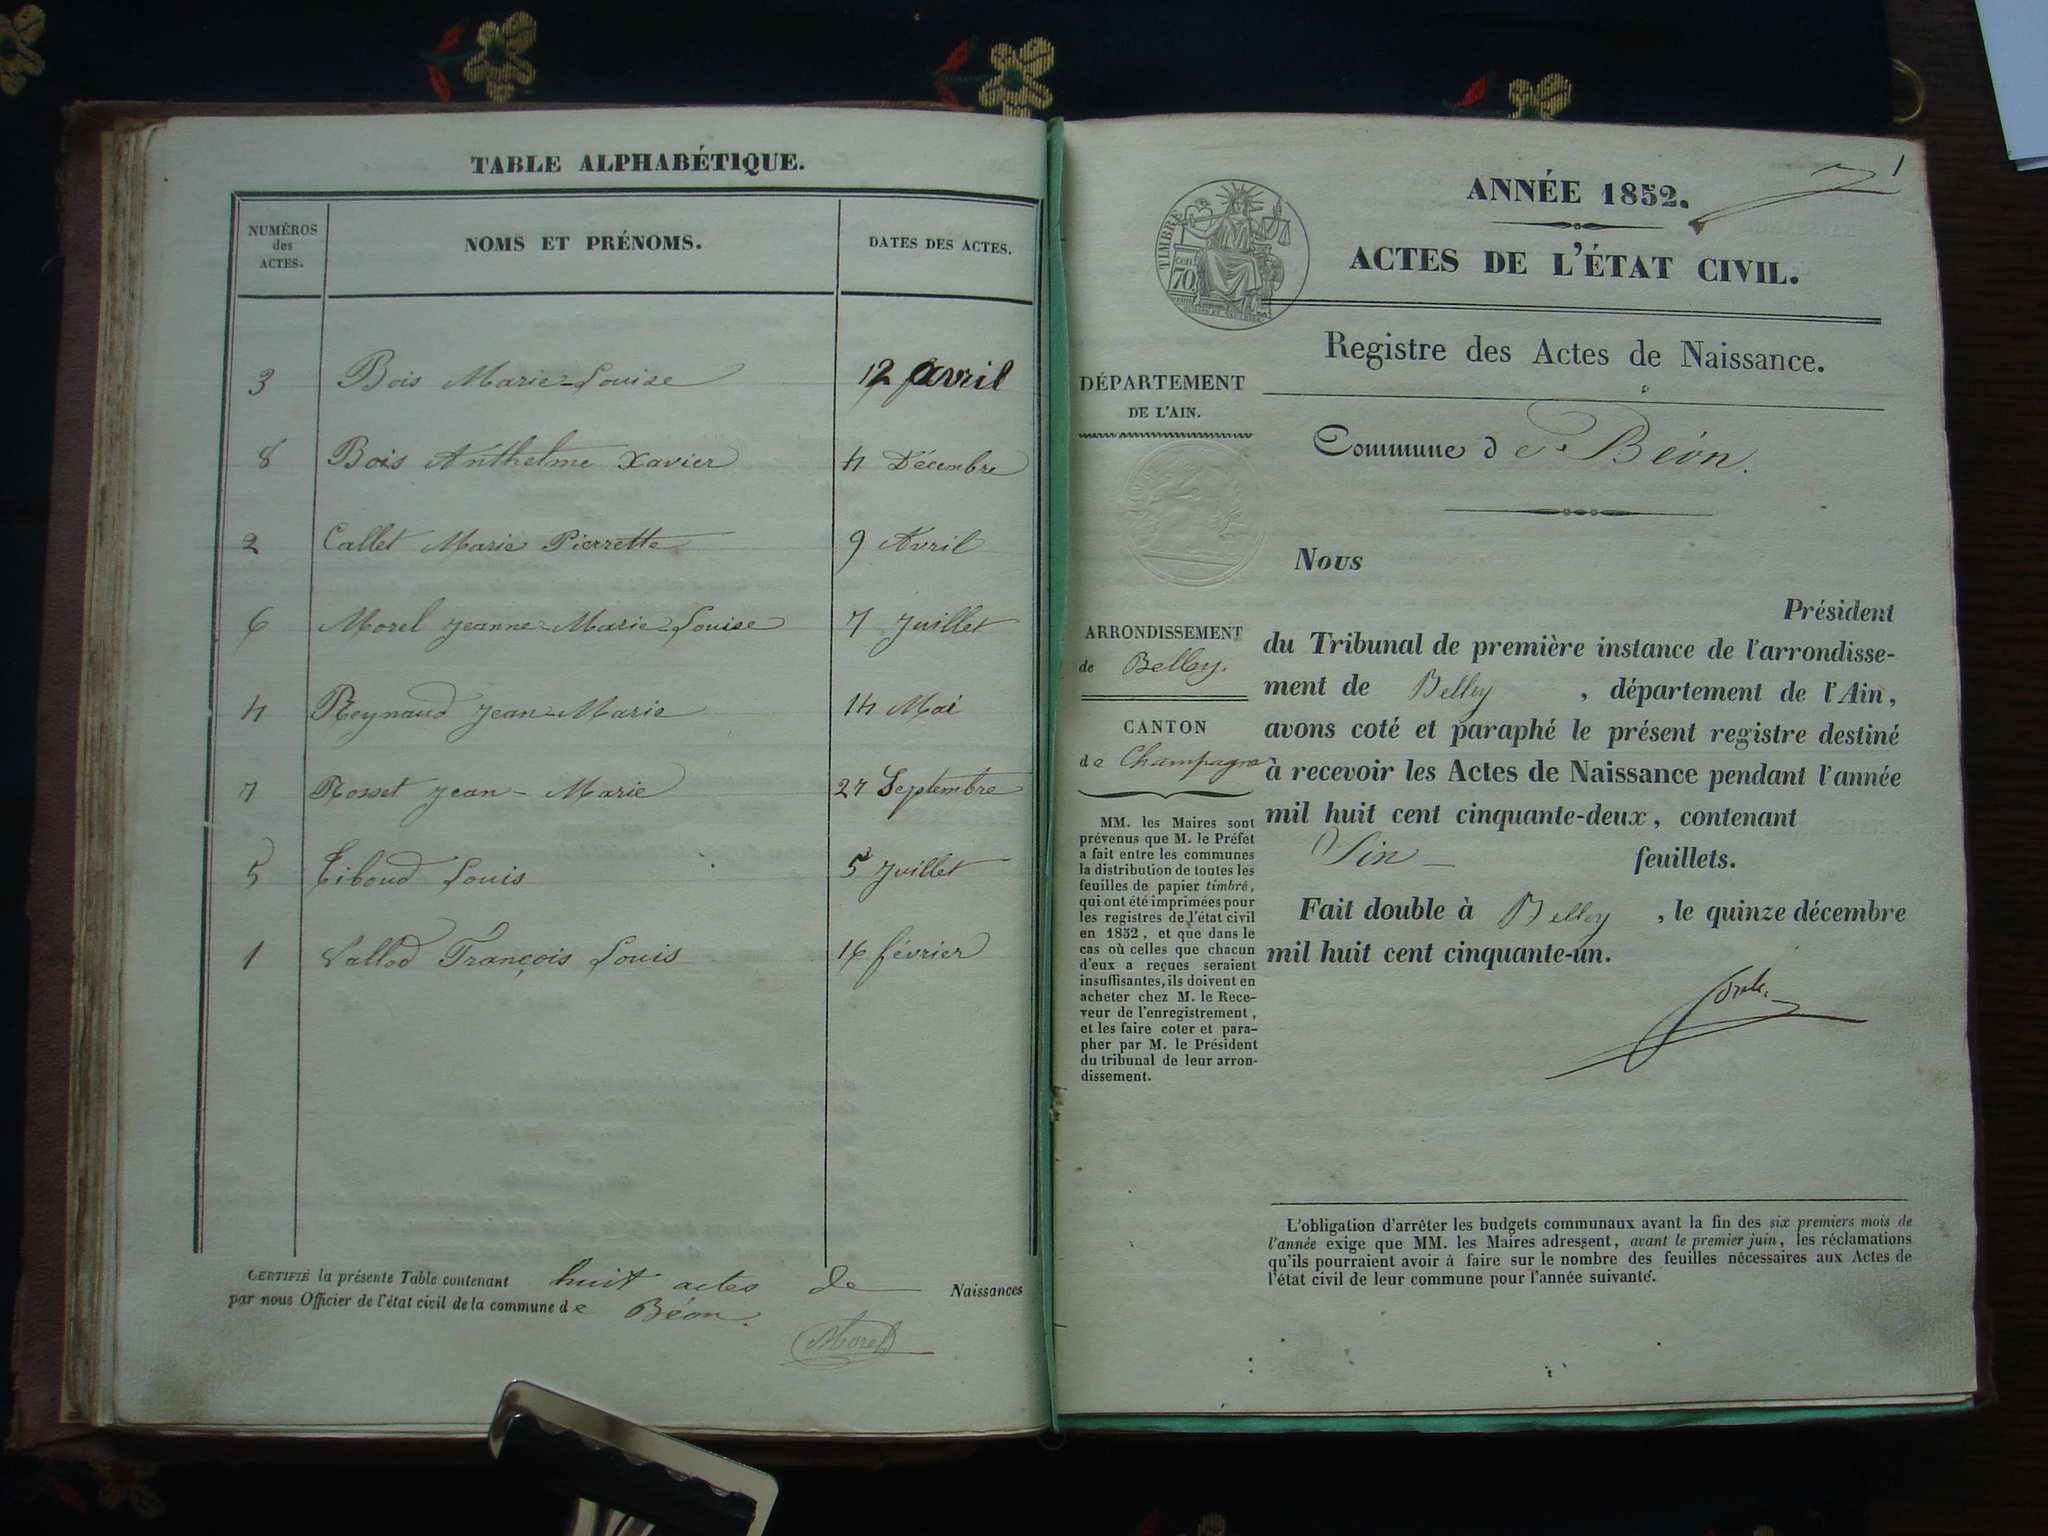 TABLE ALPHABÉTIQUE.
NUMÉROS
des
ACTES.
NOMS ET PRÉNOMS.
DATES DES ACTES.
3 Bois Marie-Louise 12 Avril
8 Bois Anthelme Xavier 4 Décembre
2 Callet Marie Pierrette 9 Avril
6 Morel Jeanne-Marie-Louise 7 Juillet
4 Reynaud Jean-Marie 14 Mai
7 Rosset Jean-Marie 27 Septembre
5 Tiboud Louis 5 Juillet
1 Vallod François Louis 16 février
CERTIFIÉ la présente Table contenant huit actes de Naissances
par nous Officier de l'état civil de la commune de Béon.
Morel
1
ANNÉE 1852.
TIMBRE
70
cen
ACTES DE L'ÉTAT CIVIL.
Registre des Actes de Naissance.
DÉPARTEMENT
DE L'AIN.
Commune de Béon.
ARRONDISSEMENT
de Belley.
CANTON
de Champagne
MM. les Maires sont
prévenus que M. le Préfet
a fait entre les communes
la distribution de toutes les
feuilles de papier timbré,
qui ont été imprimées pour
les registres de l'état civil
en 1852, et que dans le
cas où celles que chacun
d'eux a reçues seraient
insuffisantes, ils doivent en
acheter chez M. le Rece-
veur de l'enregistrement,
et les faire coter et para-
pher par M. le Président
du tribunal de leur arron-
dissement.
Nous
Président
du Tribunal de première instance de l'arrondisse-
ment de Belley, département de l'Ain,
avons coté et paraphé le présent registre destiné
à recevoir les Actes de Naissance pendant l'année
mil huit cent cinquante-deux, contenant
feuillets.
Fait double à Belley, le quinze décembre
mil huit cent cinquante-un.
L'obligation d'arrêter les budgets communaux avant la fin des six premiers mois de
l'année exige que MM. les Maires adressent, avant le premier juin, les réclamations
qu'ils pourraient avoir à faire sur le nombre des feuilles nécessaires aux Actes de
l'état civil de leur commune pour l'année suivante.